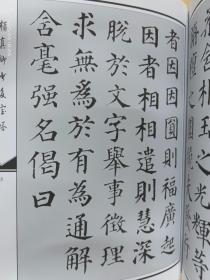 玉之光輝等
者因因圓則福廣起
因者相相遣則慧深
脫於文字舉事徵理
求無為於有為通解
含毫强名偈曰